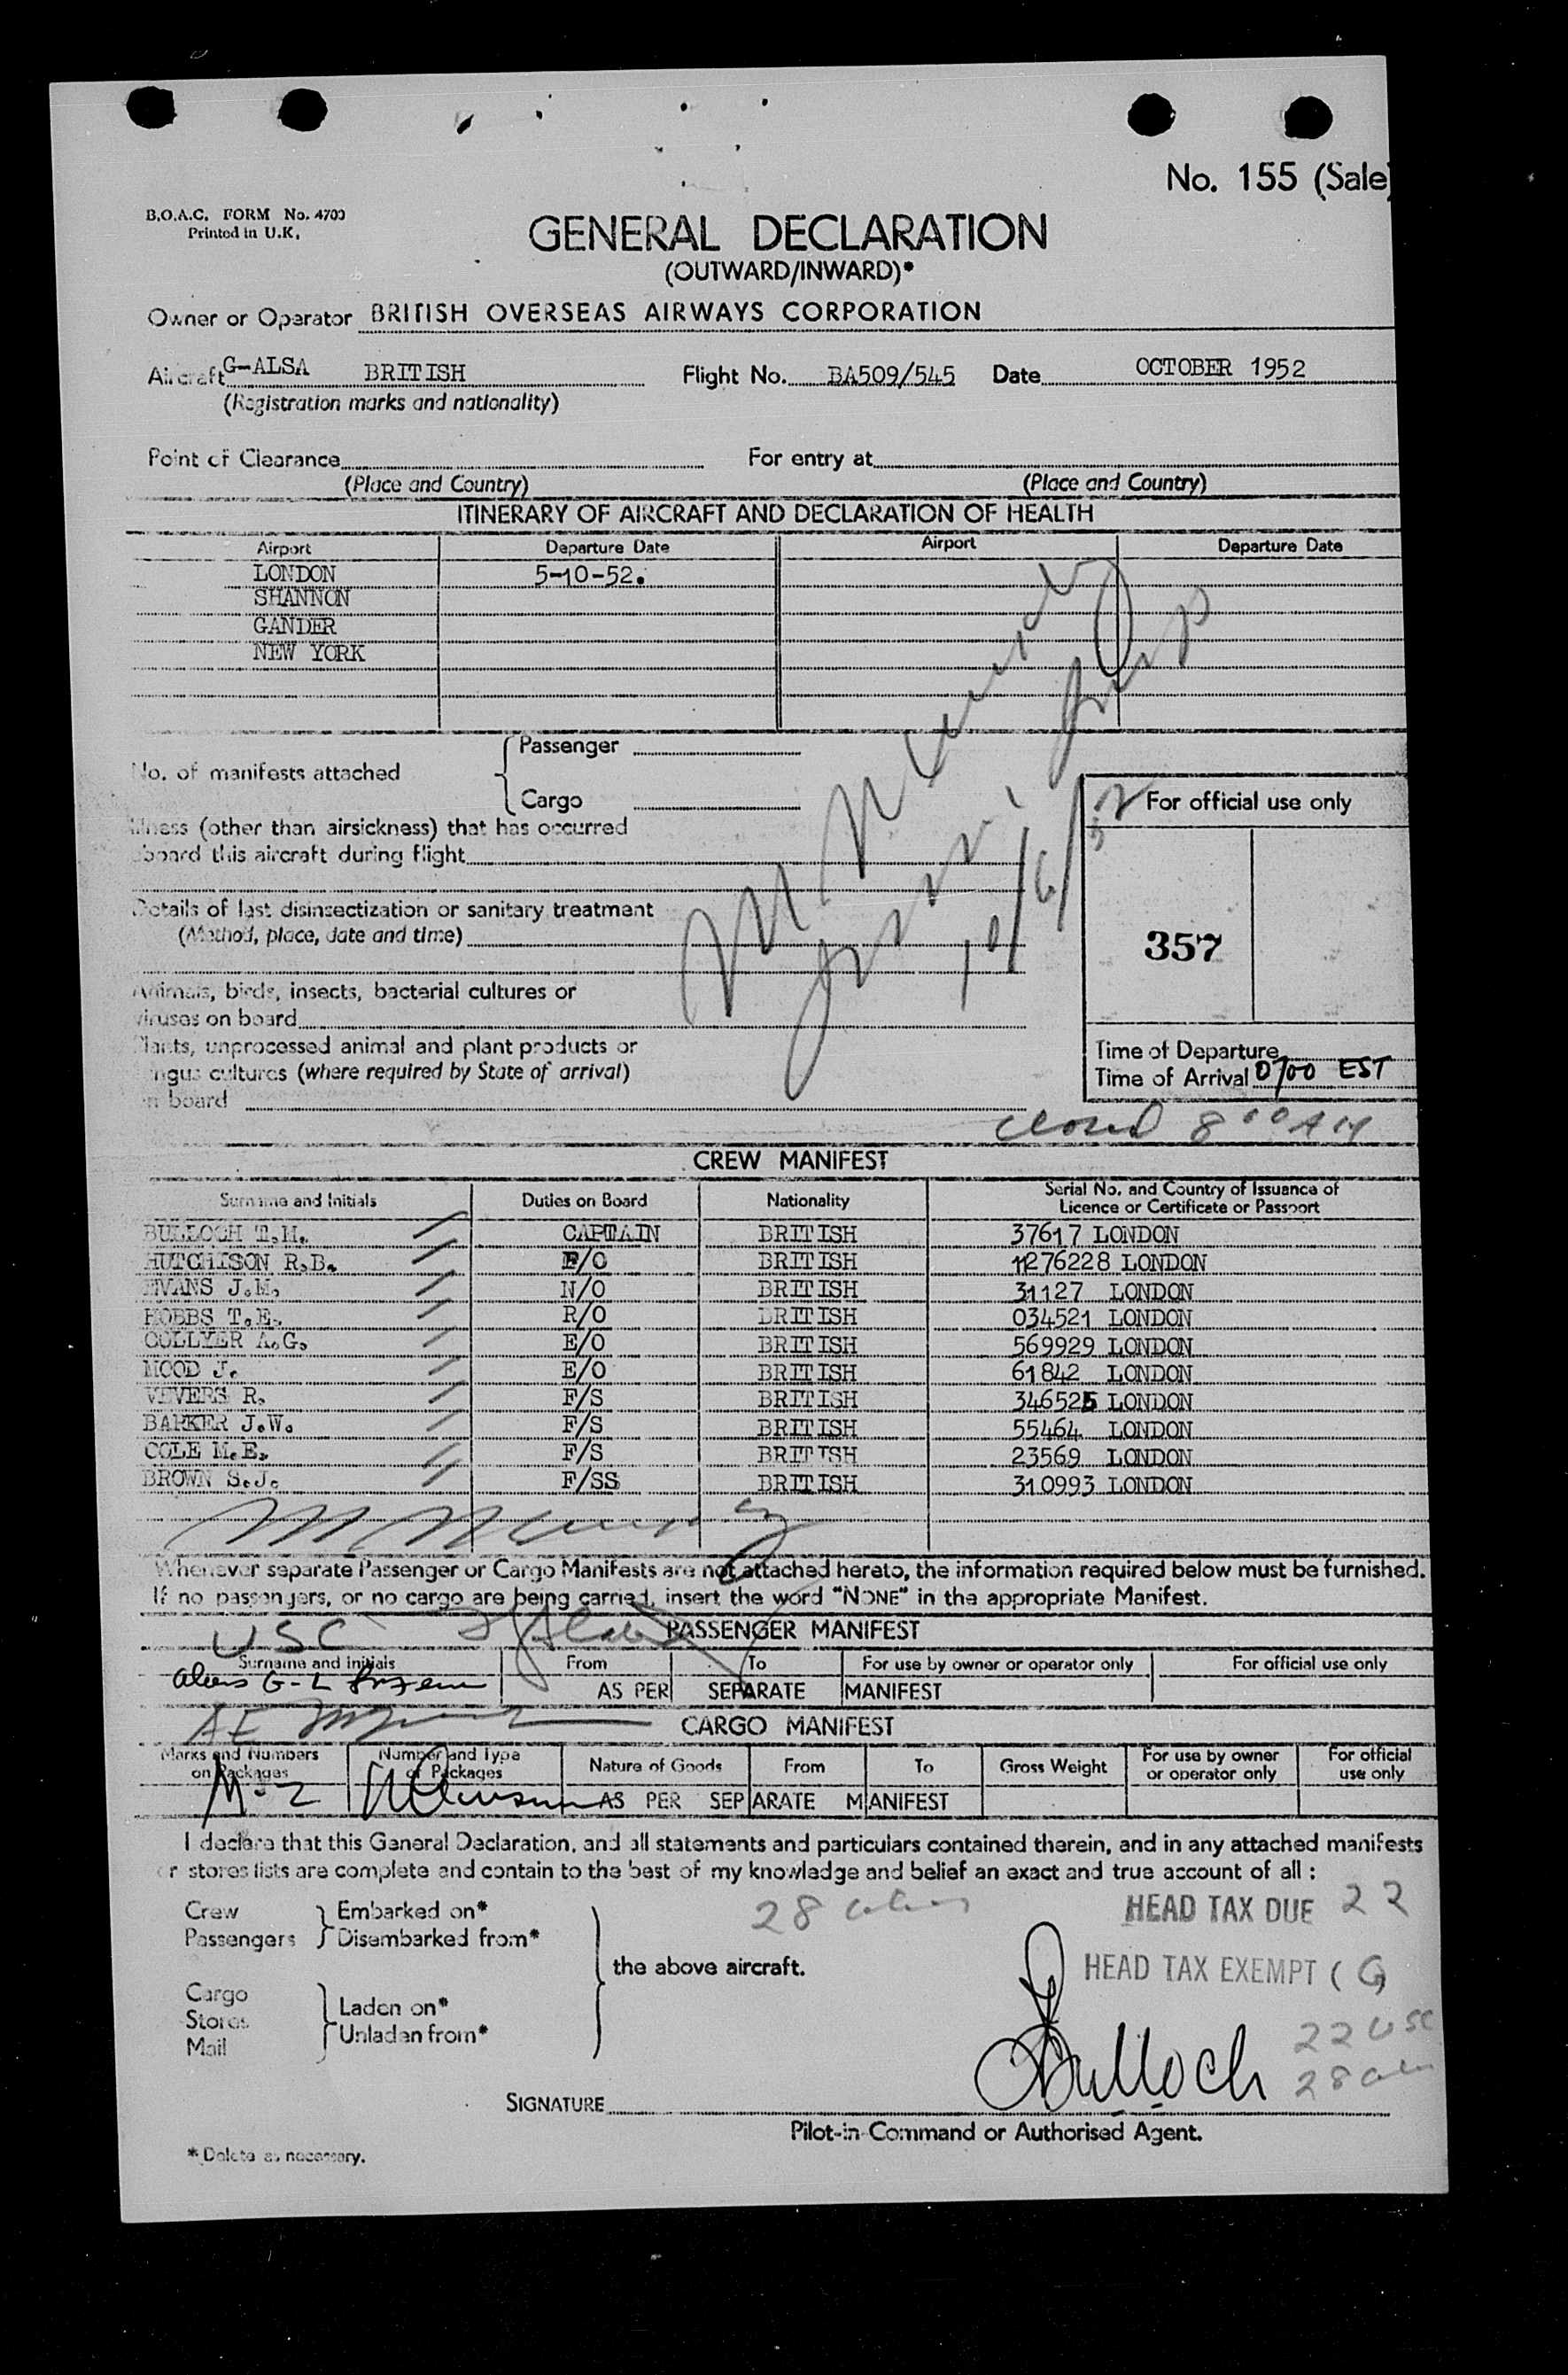 No. 155 (Sale
B.O.A.C. FORM No. 4700
Printed in U.K.
GENERAL DECLARATION
(OUTWARD/INWARD)*
Owner or Operator BRITISH OVERSEAS AIRWAYS CORPORATION
Aircraft G-ALSA BRITISH Flight No. BA509/545 Date OCTOBER 1952
(Registration marks and nationality)
Point of Clearance For entry at
(Place and Country) (Place and Country)
ITINERARY OF AIRCRAFT AND DECLARATION OF HEALTH
Airport Departure Date Airport Departure Date
LONDON 5-10-52.
SHANNON
GANDER
NEW YORK
No. of manifests attached { Passenger
Cargo
Illness (other than airsickness) that has occurred
aboard this aircraft during flight
Details of last disinsectization or sanitary treatment
(Method, place, date and time)
Animals, birds, insects, bacterial cultures or
viruses on board
Plants, unprocessed animal and plant products or
fungus cultures (where required by State of arrival)
on board
For official use only
357
Time of Departure
Time of Arrival 0700 EST
closed 8 00 AM
CREW MANIFEST
Surname and Initials Duties on Board Nationality Serial No. and Country of Issuance of Licence or Certificate or Passport
BULLOCH T.M. CAPTAIN BRITISH 37617 LONDON
HUTCHISON R.B. F/O BRITISH 11276228 LONDON
EVANS J.M. N/O BRITISH 31127 LONDON
HOBBS T.E. R/O BRITISH 034521 LONDON
COLLYER A.G. E/O BRITISH 569929 LONDON
MOOD J. E/O BRITISH 61842 LONDON
VEVERS R. F/S BRITISH 346525 LONDON
BARKER J.W. F/S BRITISH 55464 LONDON
COLE M.E. F/S BRITISH 23569 LONDON
BROWN S.J. F/SS BRITISH 310993 LONDON
Whenever separate Passenger or Cargo Manifests are not attached hereto, the information required below must be furnished.
If no passengers, or no cargo are being carried, insert the word "NONE" in the appropriate Manifest.
USC
PASSENGER MANIFEST
Surname and initials From To For use by owner or operator only For official use only
AS PER SEPARATE MANIFEST
CARGO MANIFEST
Marks and Numbers on Packages Number and Type of Packages Nature of Goods From To Gross Weight For use by owner or operator only For official use only
AS PER SEPARATE MANIFEST
I declare that this General Declaration, and all statements and particulars contained therein, and in any attached manifests
or stores lists are complete and contain to the best of my knowledge and belief an exact and true account of all :
Crew Embarked on*
Passengers Disembarked from*
the above aircraft.
Cargo
Stores Laden on*
Mail Unladen from*
28
HEAD TAX DUE 22
HEAD TAX EXEMPT (
22 USC
28
Bulloch
SIGNATURE
Pilot-in-Command or Authorised Agent.
* Delete as necessary.